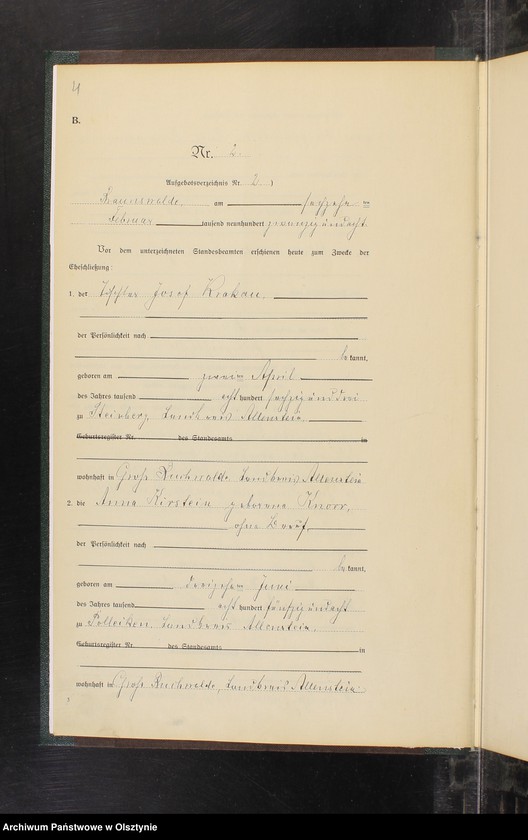 4
B.
Nr. 2.
Aufgebotsverzeichnis Nr. 2 )
am sechzehn ten
Februar tausend neunhundert zwanzigundacht
Vor dem unterzeichneten Standesbeamten erschienen heute zum Zwecke der
Eheschließung:
1. der Tischler Josef Krakau,
der Persönlichkeit nach
be kannt,
geboren am zweiten April
des Jahres tausend acht hundert sechzigunddrei
zu Steinberg, Landkreis Allenstein
Geburtsregister Nr. des Standesamts in
wohnhaft in Groß Buchwalde, Landkreis Allenstein
2. die Anna Kirstein geborene Knorr,
ohne Beruf,
der Persönlichkeit nach
be kannt,
geboren am Juni
des Jahres tausend acht hundert fünfzigundacht
zu Polleiken, Landkreis Allenstein.
Geburtsregister Nr. des Standesamts in
wohnhaft in Groß Buchwalde, Landkreis Allenstein
Archiwum Państwowe w Olsztynie